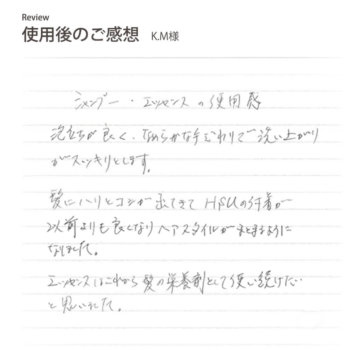 Review
使用後のご感想 K.M様
シャンプー・エッセンスの使用感
泡立ちが良く、なめらかな手ざわりで洗い上がり
がスッキリとします。
髪にハリとコシが出てきて の付着が
以前よりも良くなりヘアスタイルがまとまるように
なりました。
エッセンスはこれから髪の栄養剤として使い続けたい
と思いました。